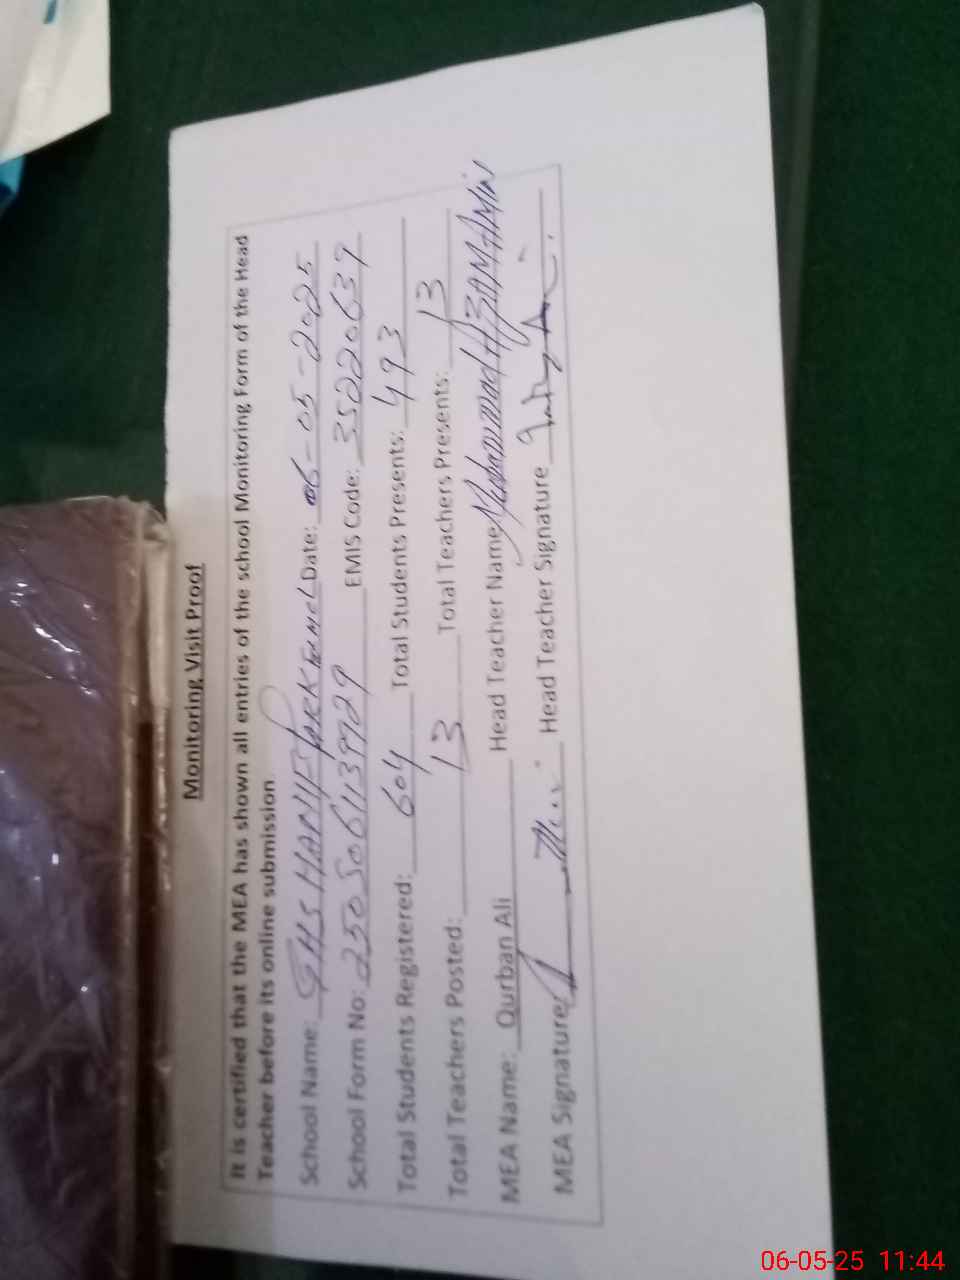 Monitoring Visit Proof
It is certified that the MEA has shown all entries of the school Monitoring Form of the Head
Teacher before its online submission
School Name: GHS HANIF PARK Date: 06-05-2025
School Form No: EMIS Code: 35220639
Total Students Registered: 604 Total Students Presents: 493
Total Teachers Posted: 13 Total Teachers Presents: 13
MEA Name: Qurban Ali Head Teacher Name Muhammad
MEA Signature Head Teacher Signature
06-05-25 11:44